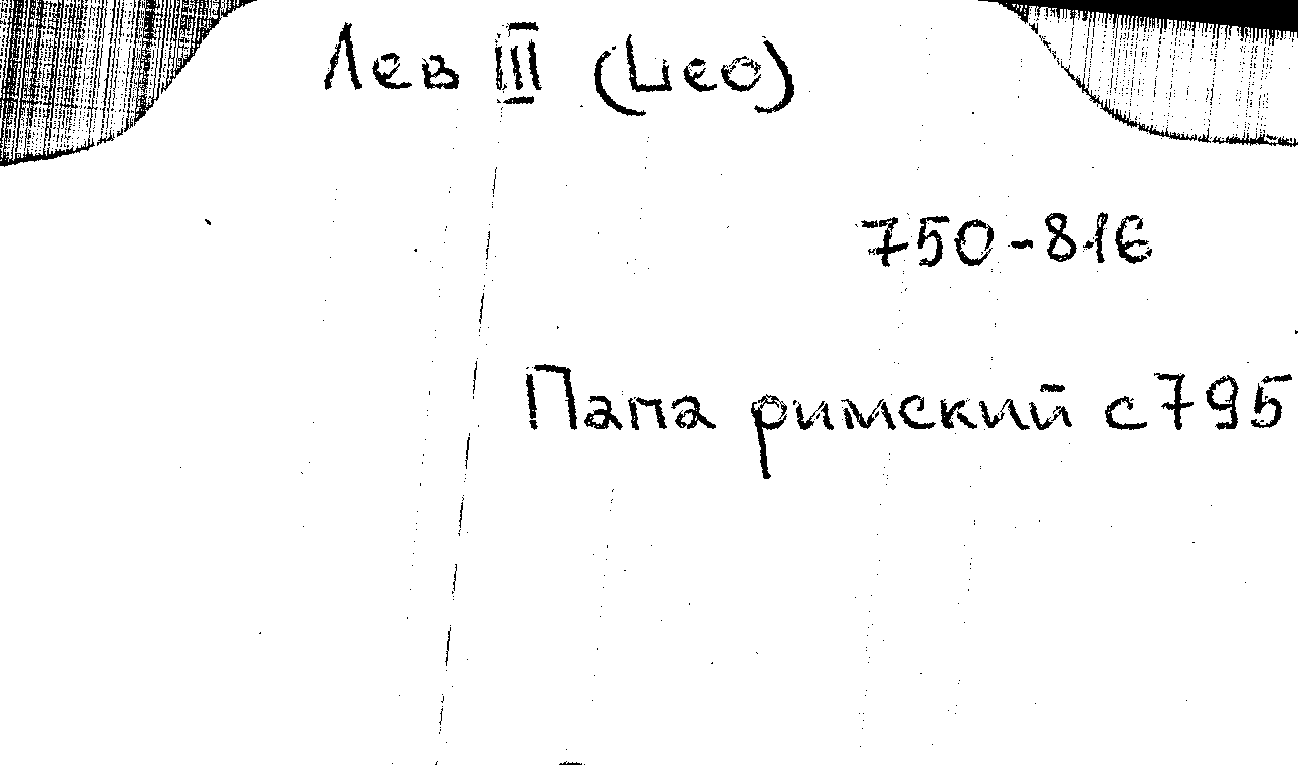 Лев III (Leo)
750-816
Папа римский с 795